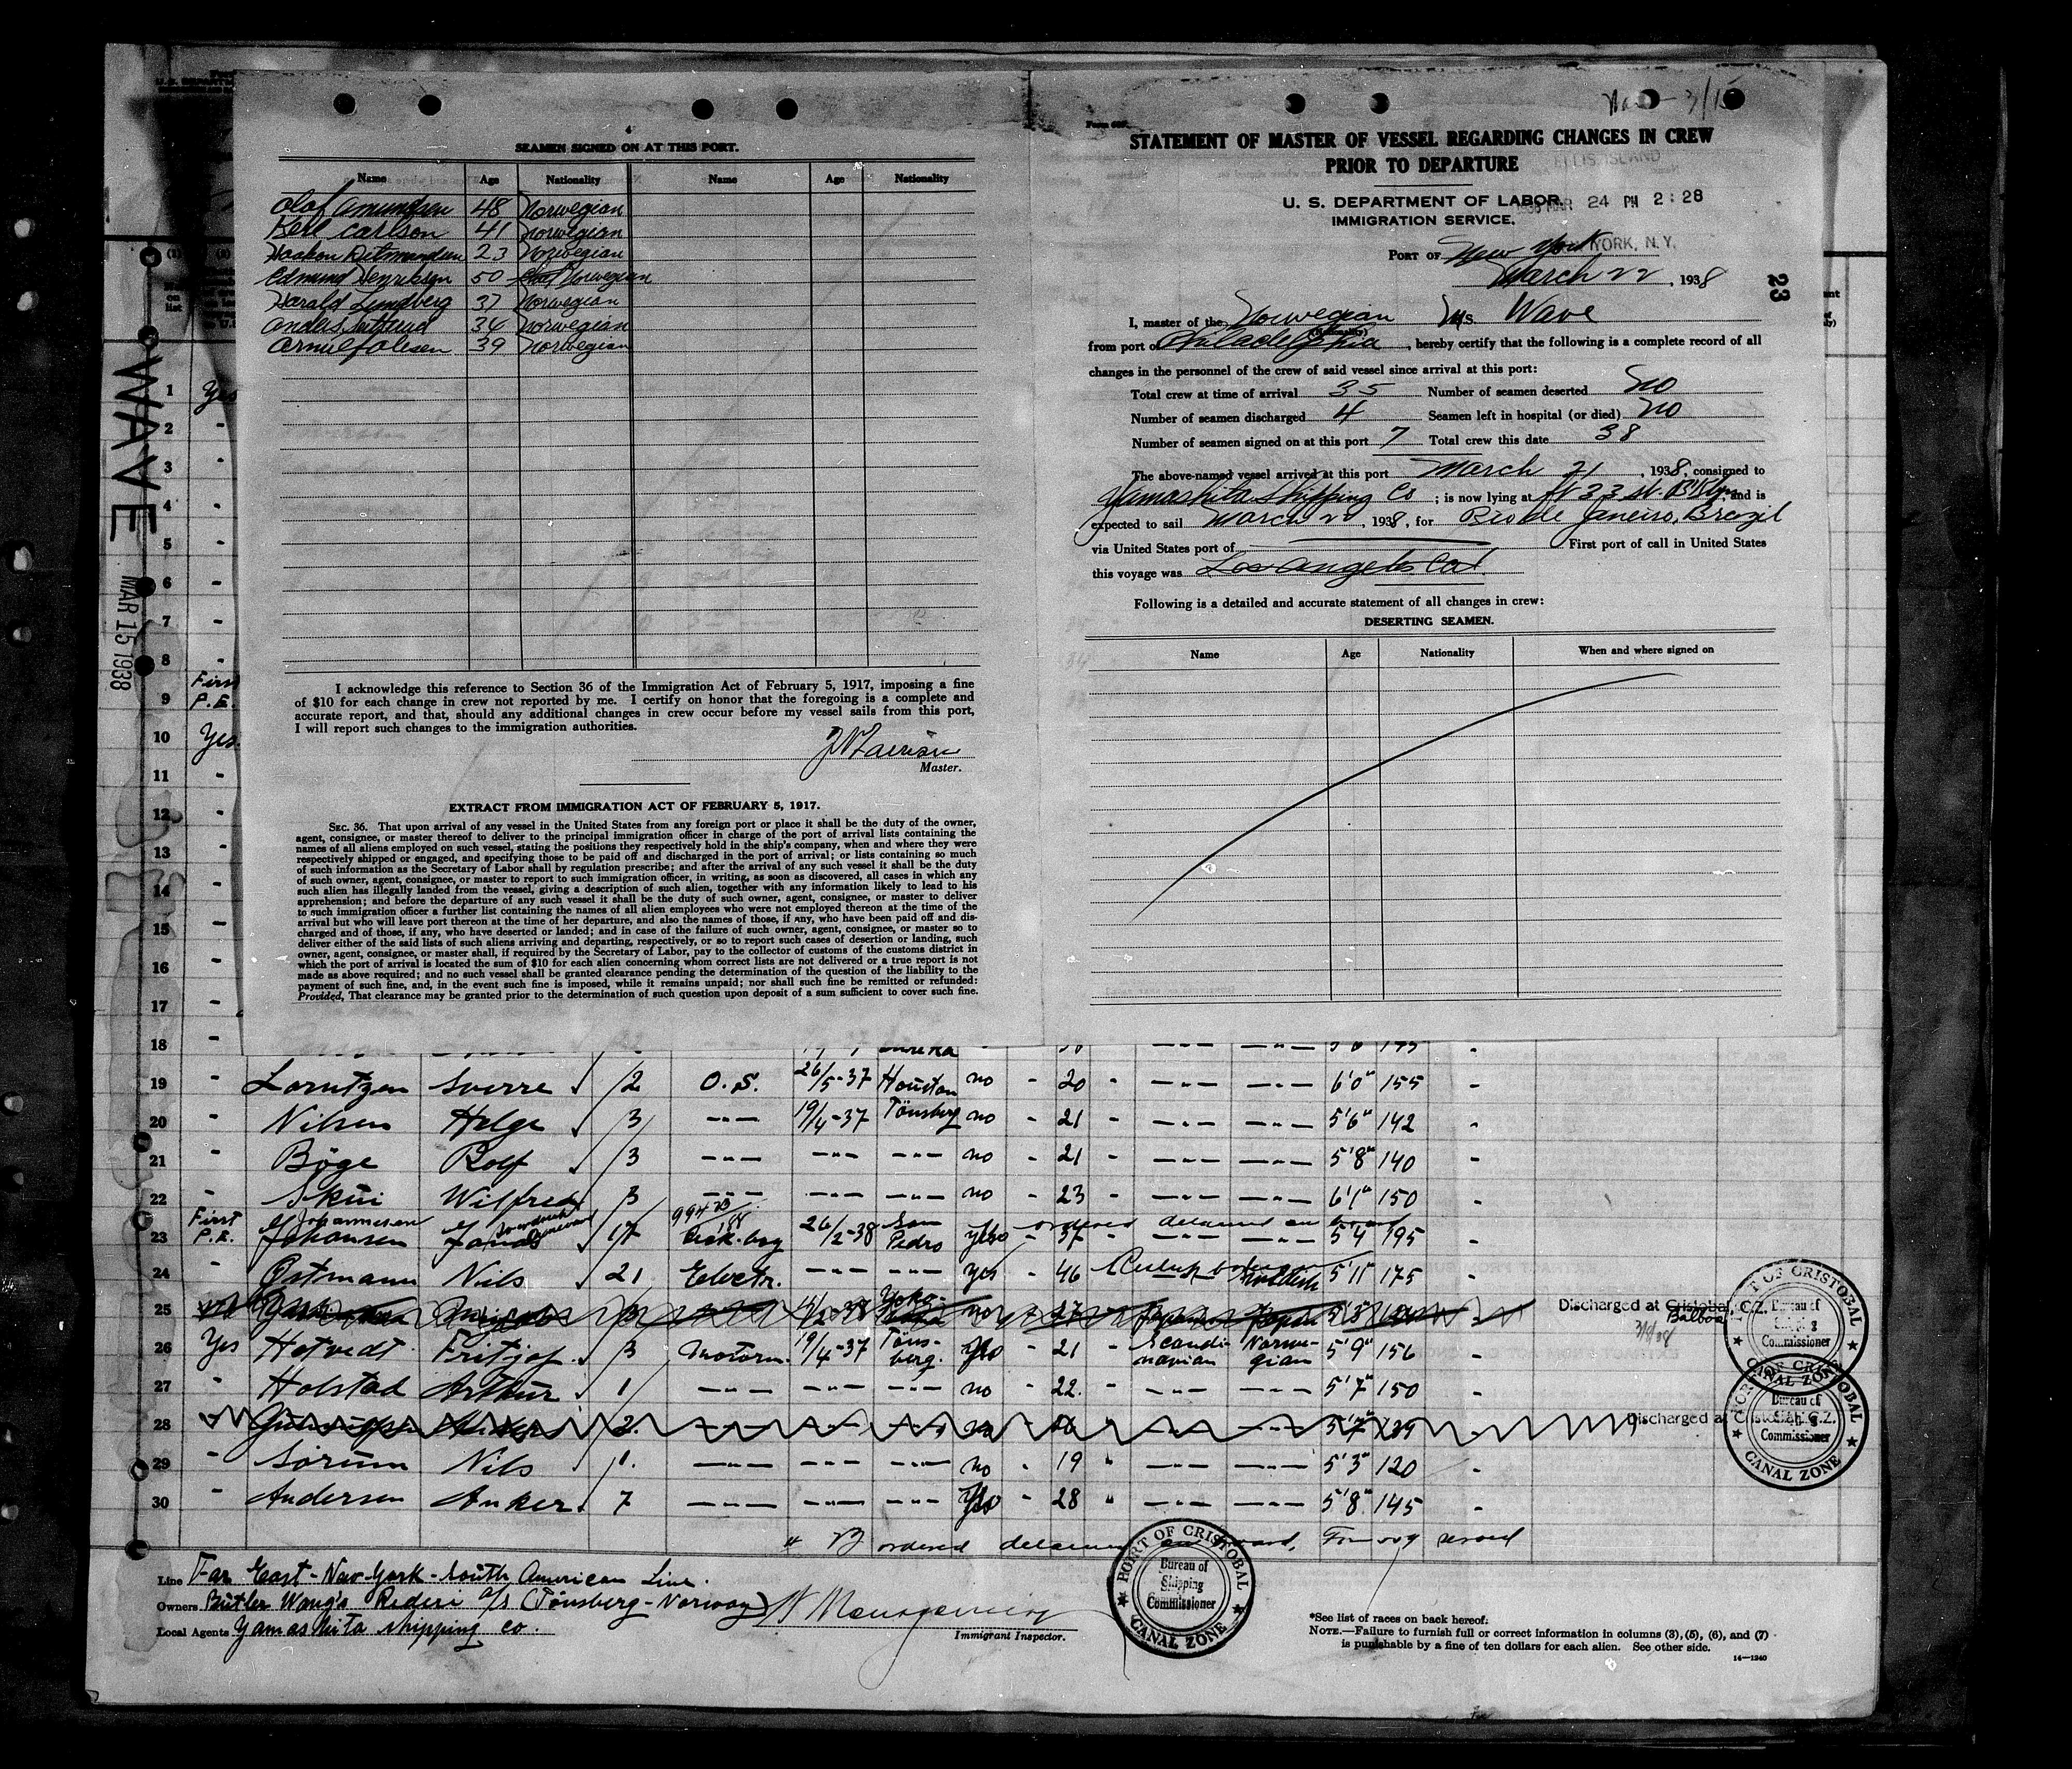 SEAMEN SIGNED ON AT THIS PORT.
Name Age Nationality Name Age Nationality
Olaf Amundsen 48 Norwegian
Karl Carlson 41 Norwegian
Haakon 23 Norwegian
Edmund Henriksen 50 Norwegian
Harald Lundberg 37 Norwegian
Anders 34 Norwegian
Arnulf Olesen 39 Norwegian
I acknowledge this reference to Section 36 of the Immigration Act of February 5, 1917, imposing a fine
of $10 for each change in crew not reported by me. I certify on honor that the foregoing is a complete and
accurate report, and that, should any additional changes in crew occur before my vessel sails from this port,
I will report such changes to the immigration authorities.
Master.
EXTRACT FROM IMMIGRATION ACT OF FEBRUARY 5, 1917.
SEC. 36. That upon arrival of any vessel in the United States from any foreign port or place it shall be the duty of the owner,
agent, consignee, or master thereof to deliver to the principal immigration officer in charge of the port of arrival lists containing the
names of all aliens employed on such vessel, stating the positions they respectively hold in the ship's company, when and where they were
respectively shipped or engaged, and specifying those to be paid off and discharged in the port of arrival; or lists containing so much
of such information as the Secretary of Labor shall by regulation prescribe; and after the arrival of any such vessel it shall be the duty
of such owner, agent, consignee, or master to report to such immigration officer, in writing, as soon as discovered, all cases in which any
such alien has illegally landed from the vessel, giving a description of such alien, together with any information likely to lead to his
apprehension; and before the departure of any such vessel it shall be the duty of such owner, agent, consignee, or master to deliver
to such immigration officer a further list containing the names of all alien employees who were not employed thereon at the time of the
arrival but who will leave port thereon at the time of her departure, and also the names of those, if any, who have been paid off and dis-
charged and of those, if any, who have deserted or landed; and in case of the failure of such owner, agent, consignee, or master so to
deliver either of the said lists of such aliens arriving and departing, respectively, or so to report such cases of desertion or landing, such
owner, agent, consignee, or master shall, if required by the Secretary of Labor, pay to the collector of customs of the customs district in
which the port of arrival is located the sum of $10 for each alien concerning whom correct lists are not delivered or a true report is not
made as above required; and no such vessel shall be granted clearance pending the determination of the question of the liability to the
payment of such fine, and, in the event such fine is imposed, while it remains unpaid; nor shall such fine be remitted or refunded:
Provided, That clearance may be granted prior to the determination of such question upon deposit of a sum sufficient to cover such fine.
STATEMENT OF MASTER OF VESSEL REGARDING CHANGES IN CREW
PRIOR TO DEPARTURE
ELLIS ISLAND
U. S. DEPARTMENT OF LABOR
1938 MAR 24 PM 2:28
IMMIGRATION SERVICE.
YORK, N.Y.
PORT OF New York
March 22, 1938
23
I, master of the Norwegian M/S. Wave
(Nationality)
from port of Philadelphia, hereby certify that the following is a complete record of all
changes in the personnel of the crew of said vessel since arrival at this port:
Total crew at time of arrival 35 Number of seamen deserted no
Number of seamen discharged 4 Seamen left in hospital (or died) no
Number of seamen signed on at this port 7 Total crew this date 38
The above-named vessel arrived at this port March 21, 1938, consigned to
Yamashita Shipping Co; is now lying at ft 33 st. B'klyn, and is
expected to sail March 22, 1938, for Rio de Janeiro, Brazil
via United States port of First port of call in United States
this voyage was Los Angeles Cal
Following is a detailed and accurate statement of all changes in crew:
DESERTING SEAMEN.
Name Age Nationality When and where signed on
WAVE
MAR 15 1938
1 Yes
2 "
3 "
4 "
5 "
6 "
7 "
8 "
9 First P.E.
10 Yes
11 "
12
13
14
15
16
17
18
19 " Lorntzen Sverre 2 O.S. 26/5-37 Houston no - 20 " 6'0" 155 -
20 " Nilsen Helge 3 19/4-37 Tönsberg no - 21 5'6" 142 -
21 " Böge Rolf 3 no - 21 5'8" 140 -
22 " Skui Wilfred 3 no - 23 6'1" 150 -
23 First P.E. Johannesen Johansen 17 26/2-38 San Pedro yes 37 5'4 195 -
ordered detained on board
24 " Östmann Nils 21 Electr. yes - 46 Swedish 5'11" 175 -
25 Discharged at Cristobal, C.Z. Balboa 3/8/38
26 Yes Hotvedt Fritjof 3 Motorm. 19/4-37 Töns-berg. 21 " Scandi-navian Norwe-gian 5'9" 156 -
27 " Holstad Arthur 1 no - 22 5'7" 150 -
28 2 5'7" 139 Discharged at Cristobal, C.Z.
29 " Sörum Nils 1 no - 19 " 5'3" 120 -
30 " Andersen Anker 7 - 28 " 5'8" 145 -
ordered detained on board,
PORT OF CRISTOBAL
Bureau of
Shipping
Commissioner
CANAL ZONE
PORT OF CRISTOBAL
Bureau of
Shipping
Commissioner
CANAL ZONE
PORT OF CRISTOBAL
Bureau of
Shipping
Commissioner
CANAL ZONE
Line Far East-New York-South American Line.
Owners Bütler Wang's Rederi a/s (Tönsberg-Norway)
Local Agents Yamashita Shipping Co.
Immigrant Inspector.
*See list of races on back hereof.
NOTE.—Failure to furnish full or correct information in columns (3), (5), (6), and (7)
is punishable by a fine of ten dollars for each alien. See other side.
14—1240